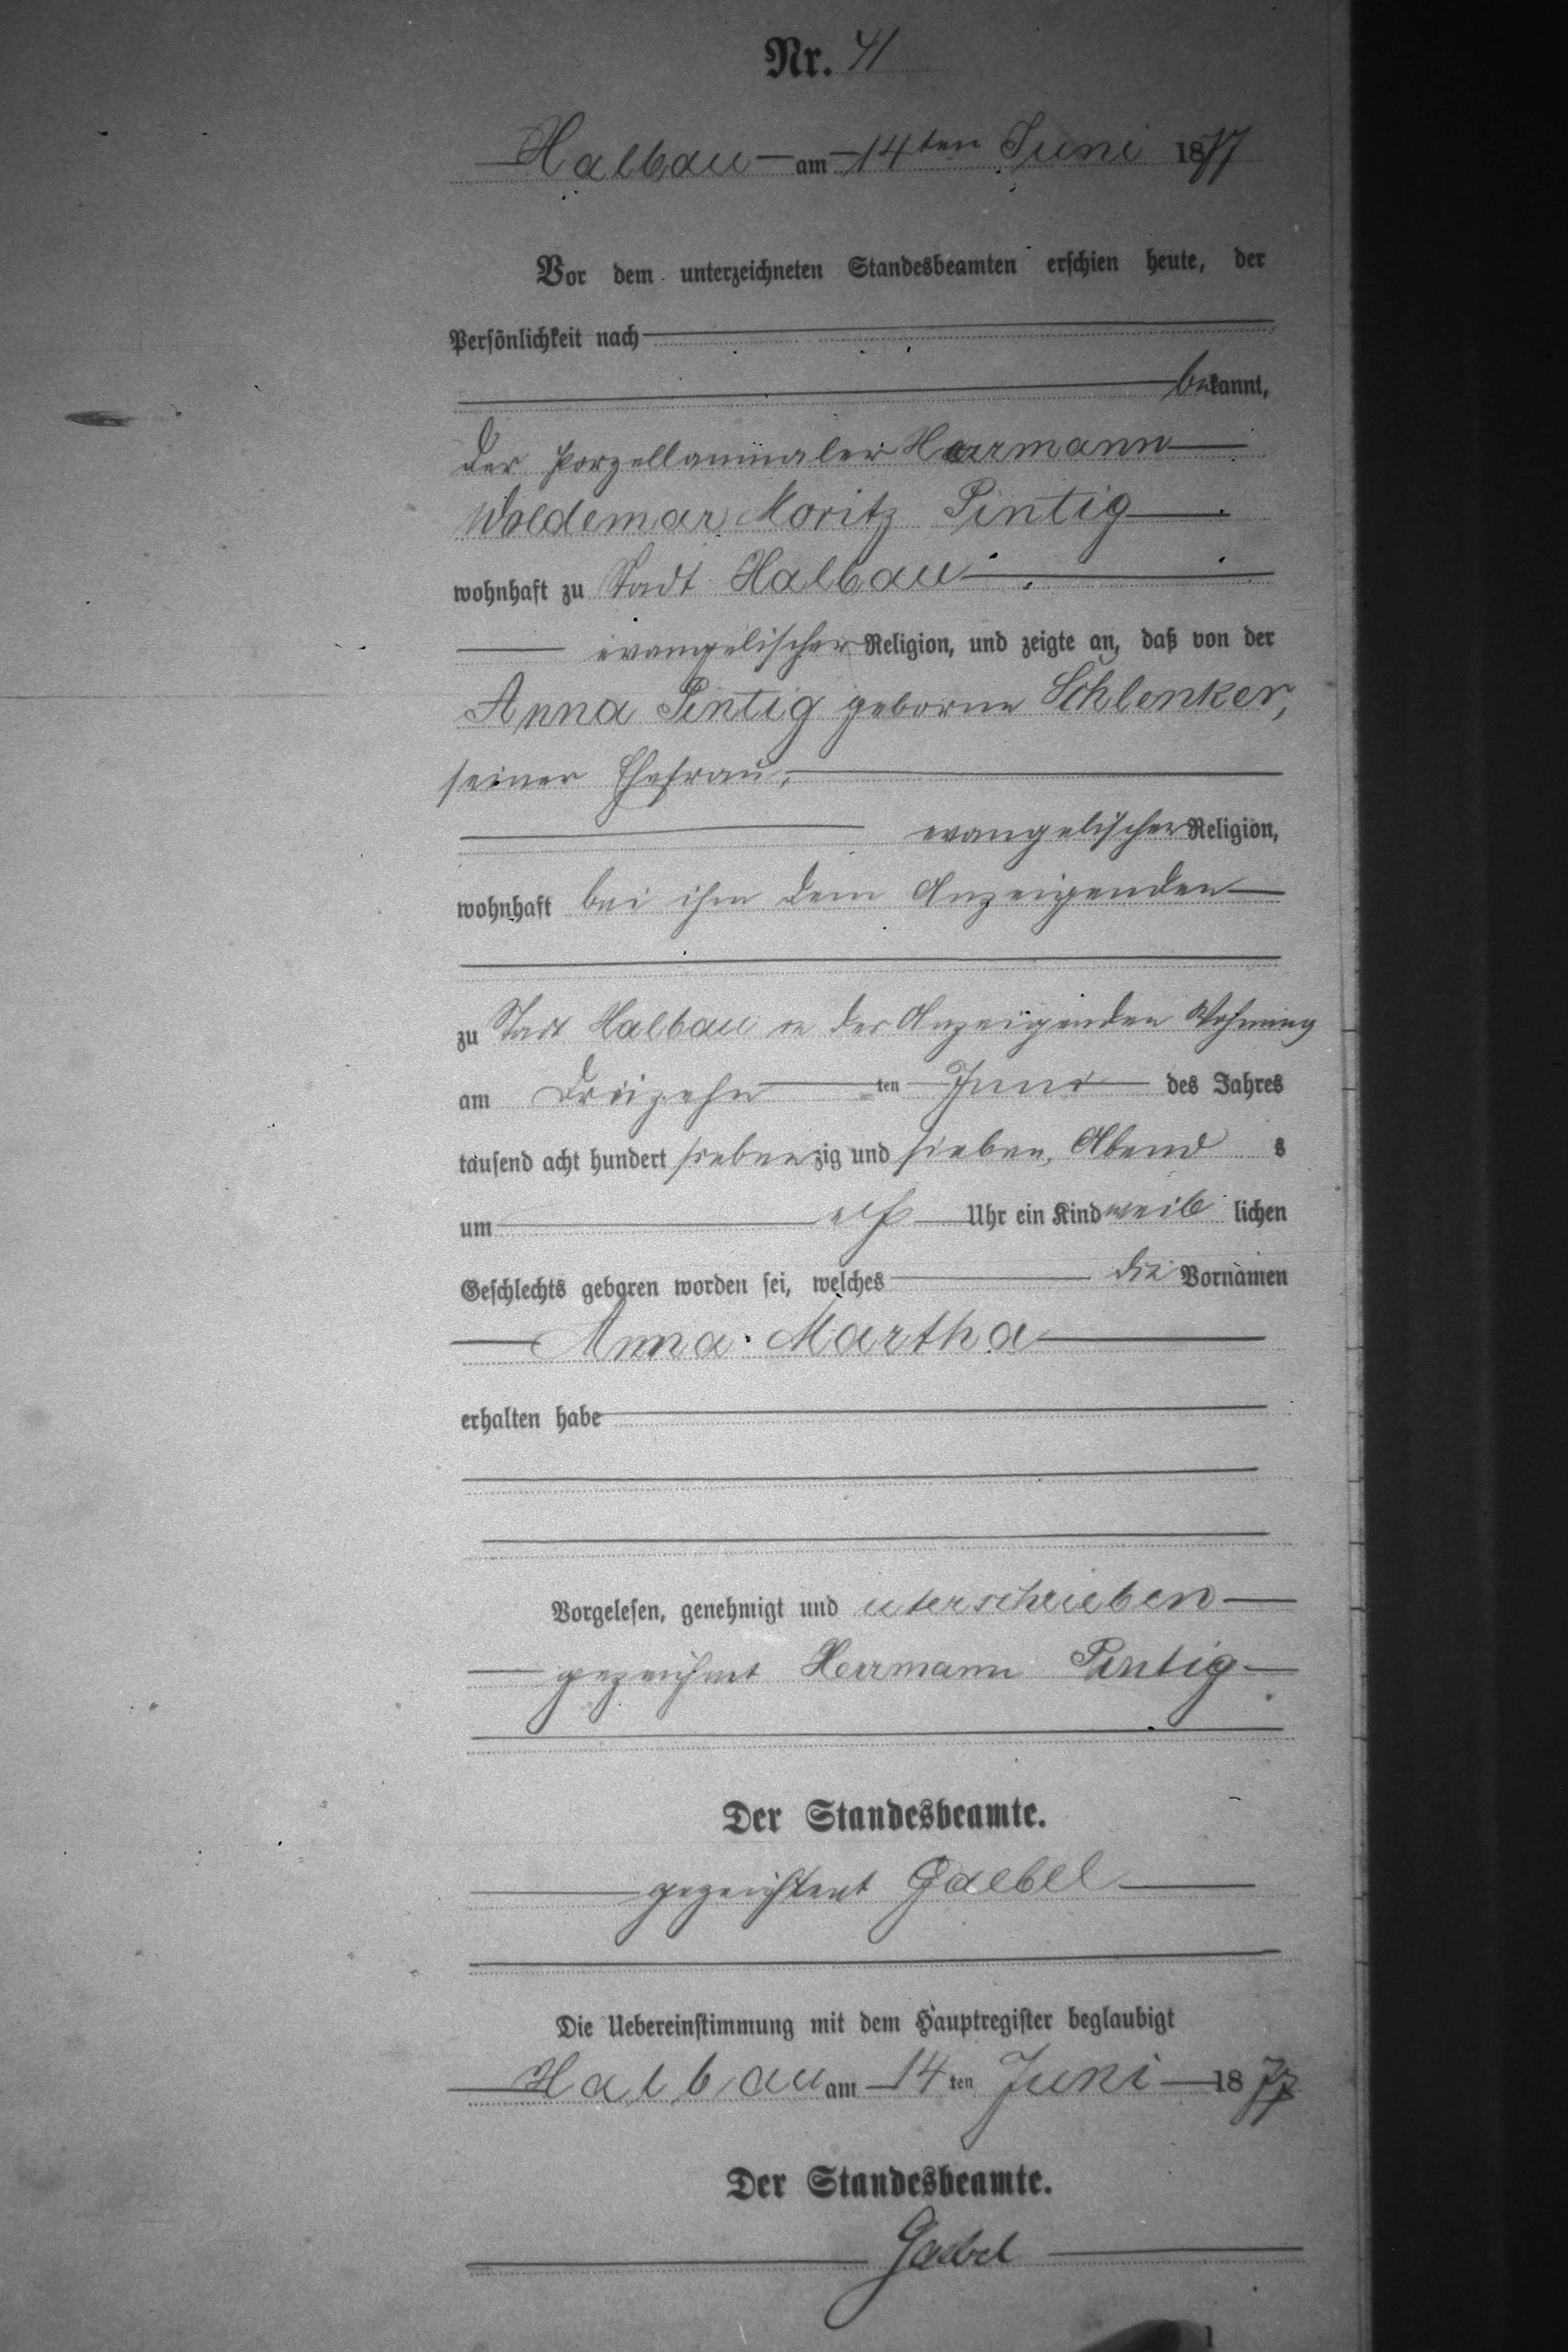 Nr. 41
Halbau am 14ten Juni 1877
Vor dem unterzeichneten Standesbeamten erschien heute, der
Persönlichkeit nach
bekannt,
der Porzellanmaler Herrmann
Woldemar Moritz Pintig
wohnhaft zu Stadt Halbau
evangelischer Religion, und zeigte an, daß von der
Anna Pintig geborne Schlenker,
seiner Ehefrau,
evangelischer Religion,
wohnhaft bei ihm dem Anzeigenden
zu Stadt Halbau in des Anzeigenden Wohnung
am Dreizehn ten Juni des Jahres
tausend acht hundert siebenzig und sieben, Abend s
um elf Uhr ein Kind weib lichen
Geschlechts geboren worden sei, welches die Vornamen
Anna Martha
erhalten habe
Vorgelesen, genehmigt und uterschrieben
gezeichnet Herrmann Pintig
Der Standesbeamte.
gezeichnet Gaebel
Die Uebereinstimmung mit dem Hauptregister beglaubigt
Halbau am 14 ten Juni 1877
Der Standesbeamte.
Gaebel
1